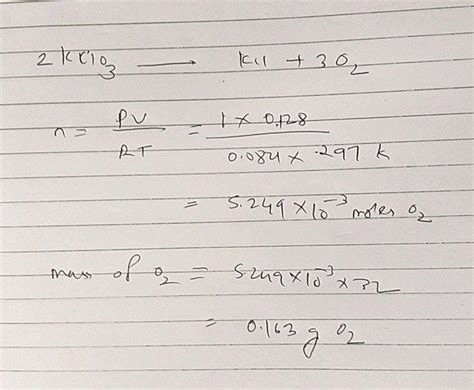 2 KClO₃ ⟶ KCl + 3O₂
n = PV / RT = 1 × 0.128 / 0.084 × .297 k
= 5.249 × 10⁻³ moles O₂
mass of O₂ = 5.249 × 10⁻³ × 32
= 0.163 g O₂